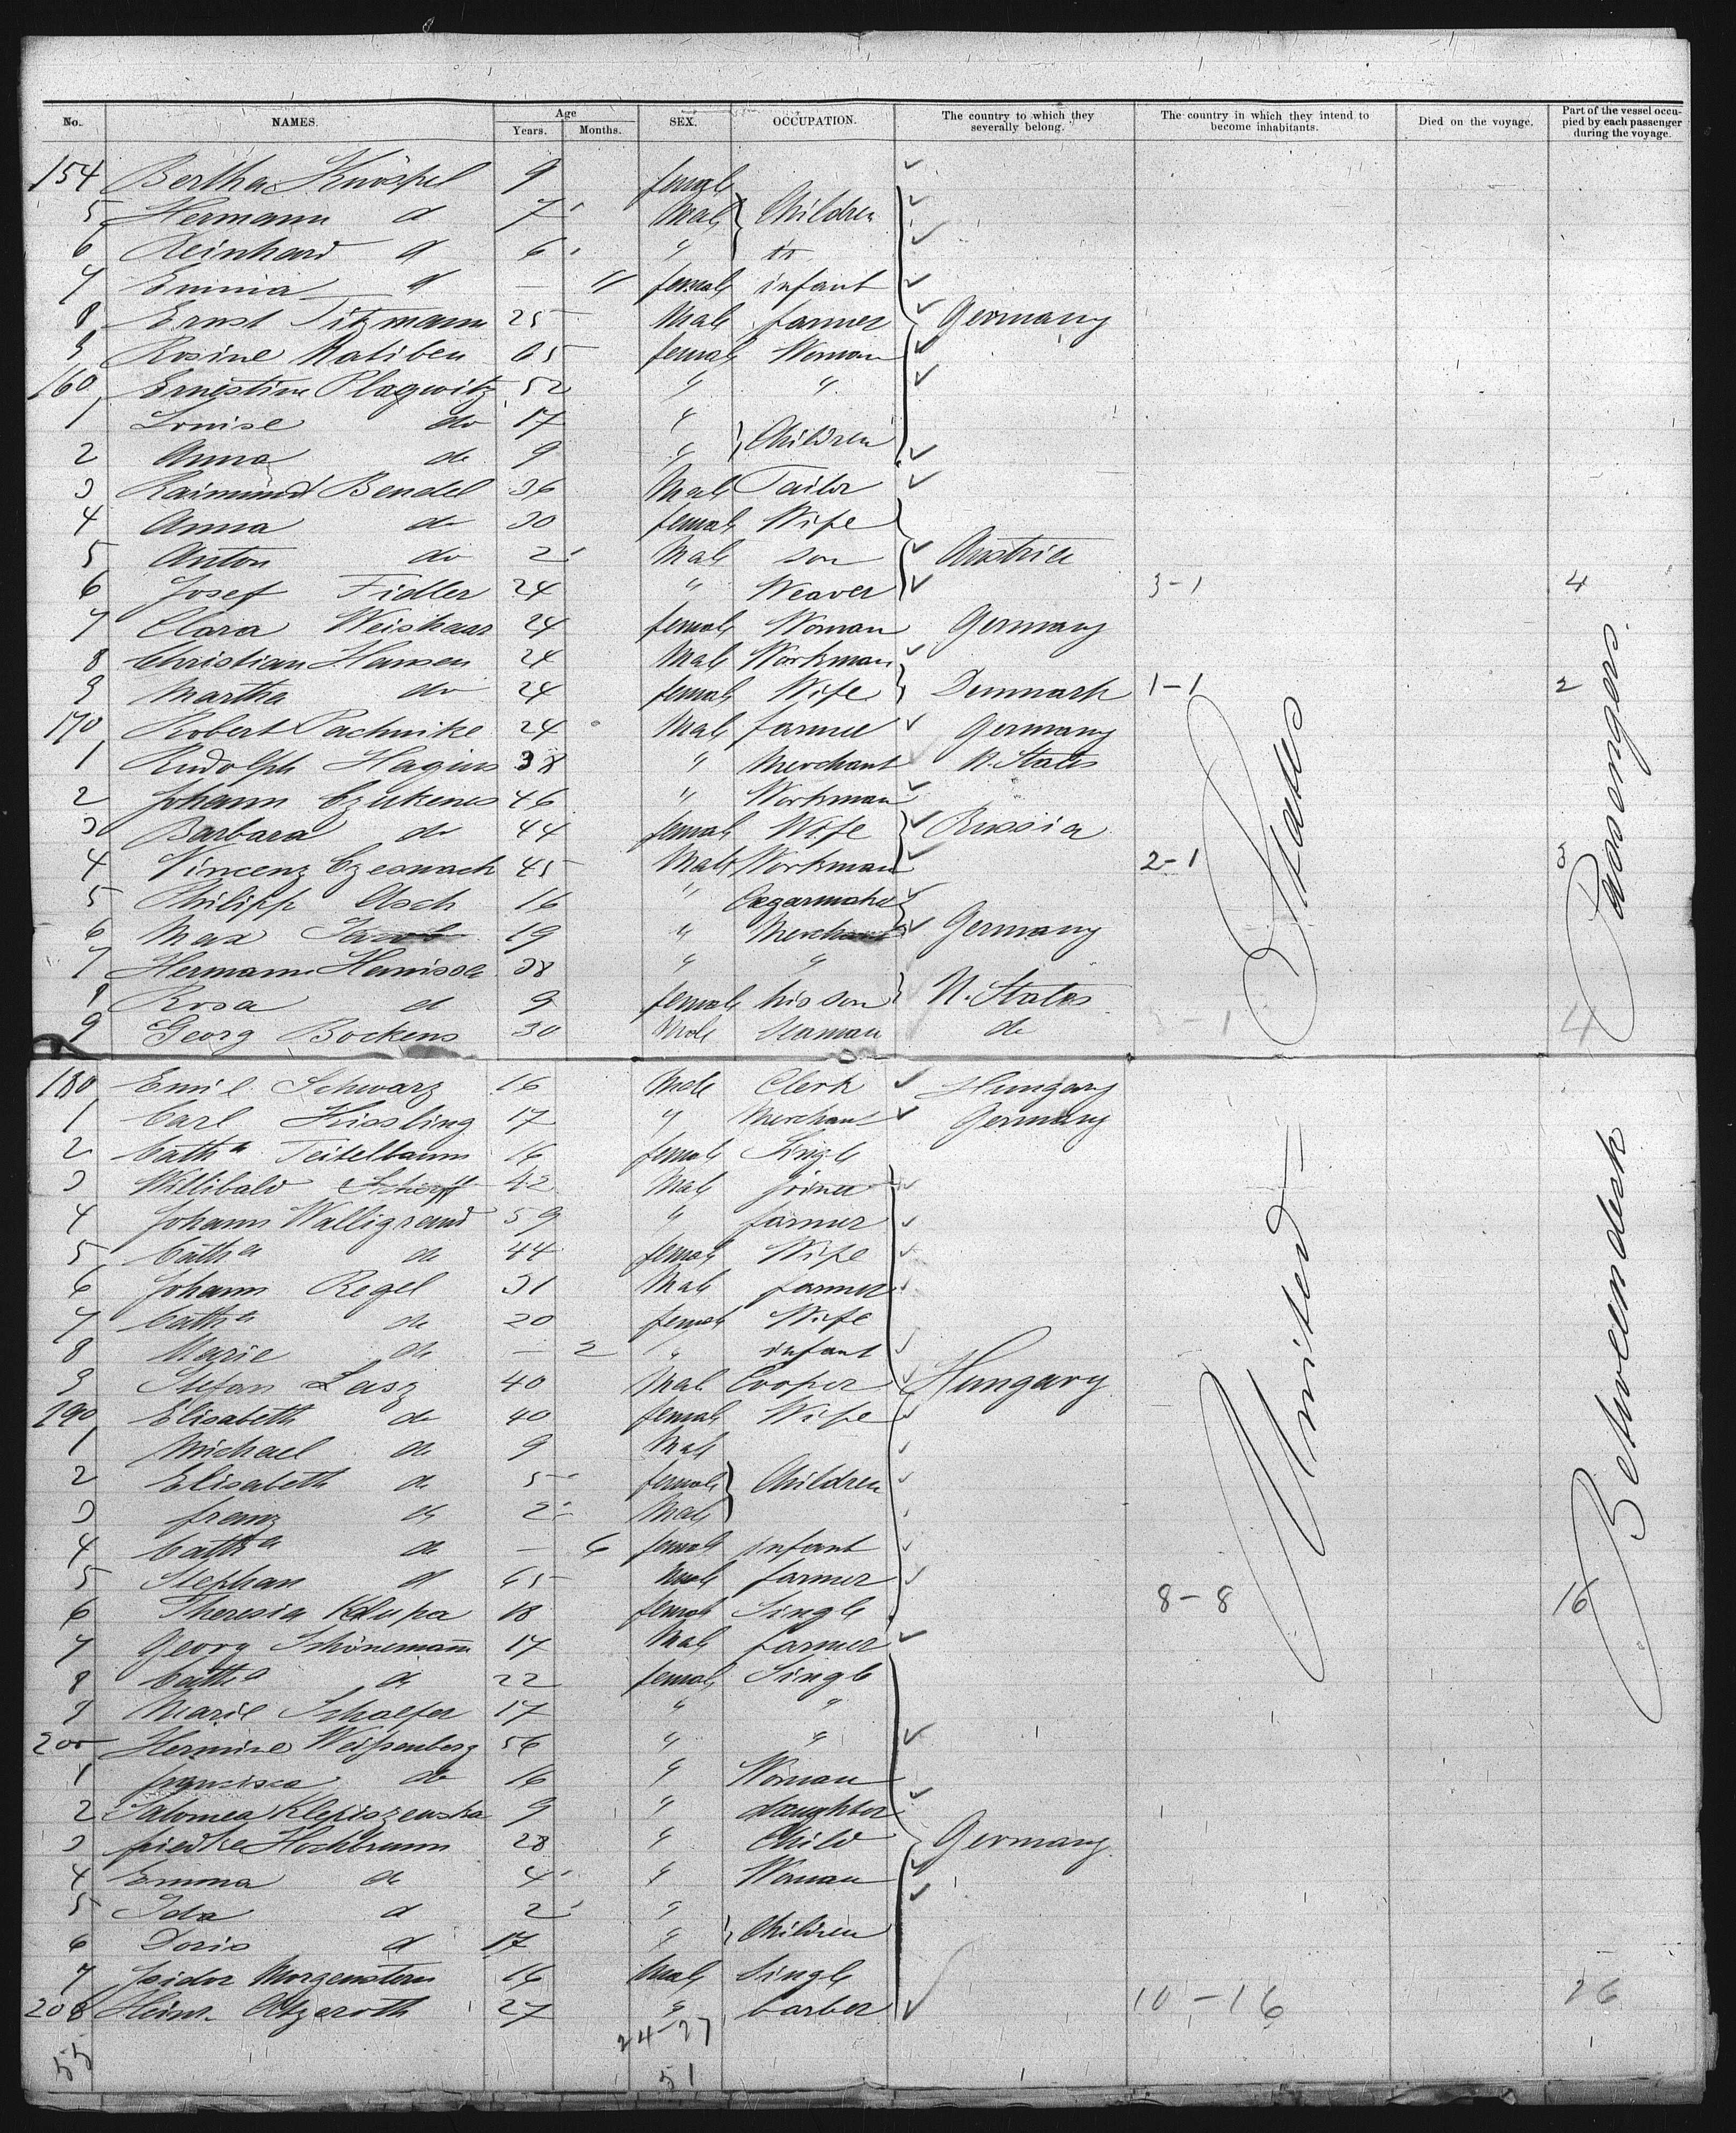 No. NAMES. Age Years. Months. SEX. OCCUPATION. The country to which they severally belong. The country in which they intend to become inhabitants. Died on the voyage. Part of the vessel occupied by each passenger during the voyage.
154 Bertha Knöspel 9 female
5 Hermann d 7 Male Children
6 Reinhard d 6 "
7 Emma d — 11 female infant
8 Ernst Titzmann 25 Male farmer Germany
9 Rosine Matiben 65 female Woman
160 Ernestine Plagwitz 52 " "
1 Louise do 17 "
2 Anna do 9 " Children
3 Raimund Bendel 36 Male Tailor
4 Anna do 30 female Wife
5 Anton do 2 Male son Austria
6 Josef Fidler 24 " Weaver 3-1 4
7 Clara Weishaar 24 female Woman Germany
8 Christian Hansen 24 Male Workman
9 Martha do 24 female Wife Denmark 1-1 2
170 Robert Pachnike 24 Male farmer Germany
1 Rudolph Hagius 38 " Merchant U. States
2 Johann Czukenes 46 " Workman
3 Barbara do 44 female Wife Russia
4 Vincenz Czesnach 45 Male Workman 2-1 3
5 Philipp Asch 16 " Cegarmaker
6 Max Jacob 19 " Merchant Germany
7 Hermann 38 " "
8 Rosa d 9 female his son U. States
9 Georg Bockens 30 Male Seaman do 3-1 4
180 Emil Schwarz 16 Male Clerk Hungary
1 Carl Kissling 17 " Merchant Germany
2 Catha Teitelbaum 16 female Single
3 Willibald Scherff 42 Male joiner
4 Johann Walligrand 59 " farmer
5 Catha do 44 female Wife
6 Johann Regel 31 Male farmer
7 Catha do 20 female Wife
8 Marie do — 2 " infant
9 Stefan Lasz 40 Male Cooper Hungary
190 Elisabeth do 40 female Wife
1 Michael do 9 Male
2 Elisabeth do 5 female Children
3 franz do 2 Male
4 Catha do — 6 female infant
5 Stephan d 65 Male farmer
6 Theresia Klupa 18 female Single 8-8 16
7 Georg Schönemann 17 Male farmer
8 Catha do 22 female Single
9 Marie Schaefer 17 " "
200 Hermine Weissenberg 56 " "
1 francisca do 16 " Woman
2 Salomea Klepiszewska 9 " daughter
3 friedke Hochbrunn 28 " Child Germany
4 Emma do 4 " Woman
5 Ida d 2 "
6 Doris d 17 " Children
7 Isidor Morgenstern 16 Male Single
208 Heinr. Atzeroth 27 " barber 10-16 26
24-27
55 51
United States
Betweendeck Passengers.